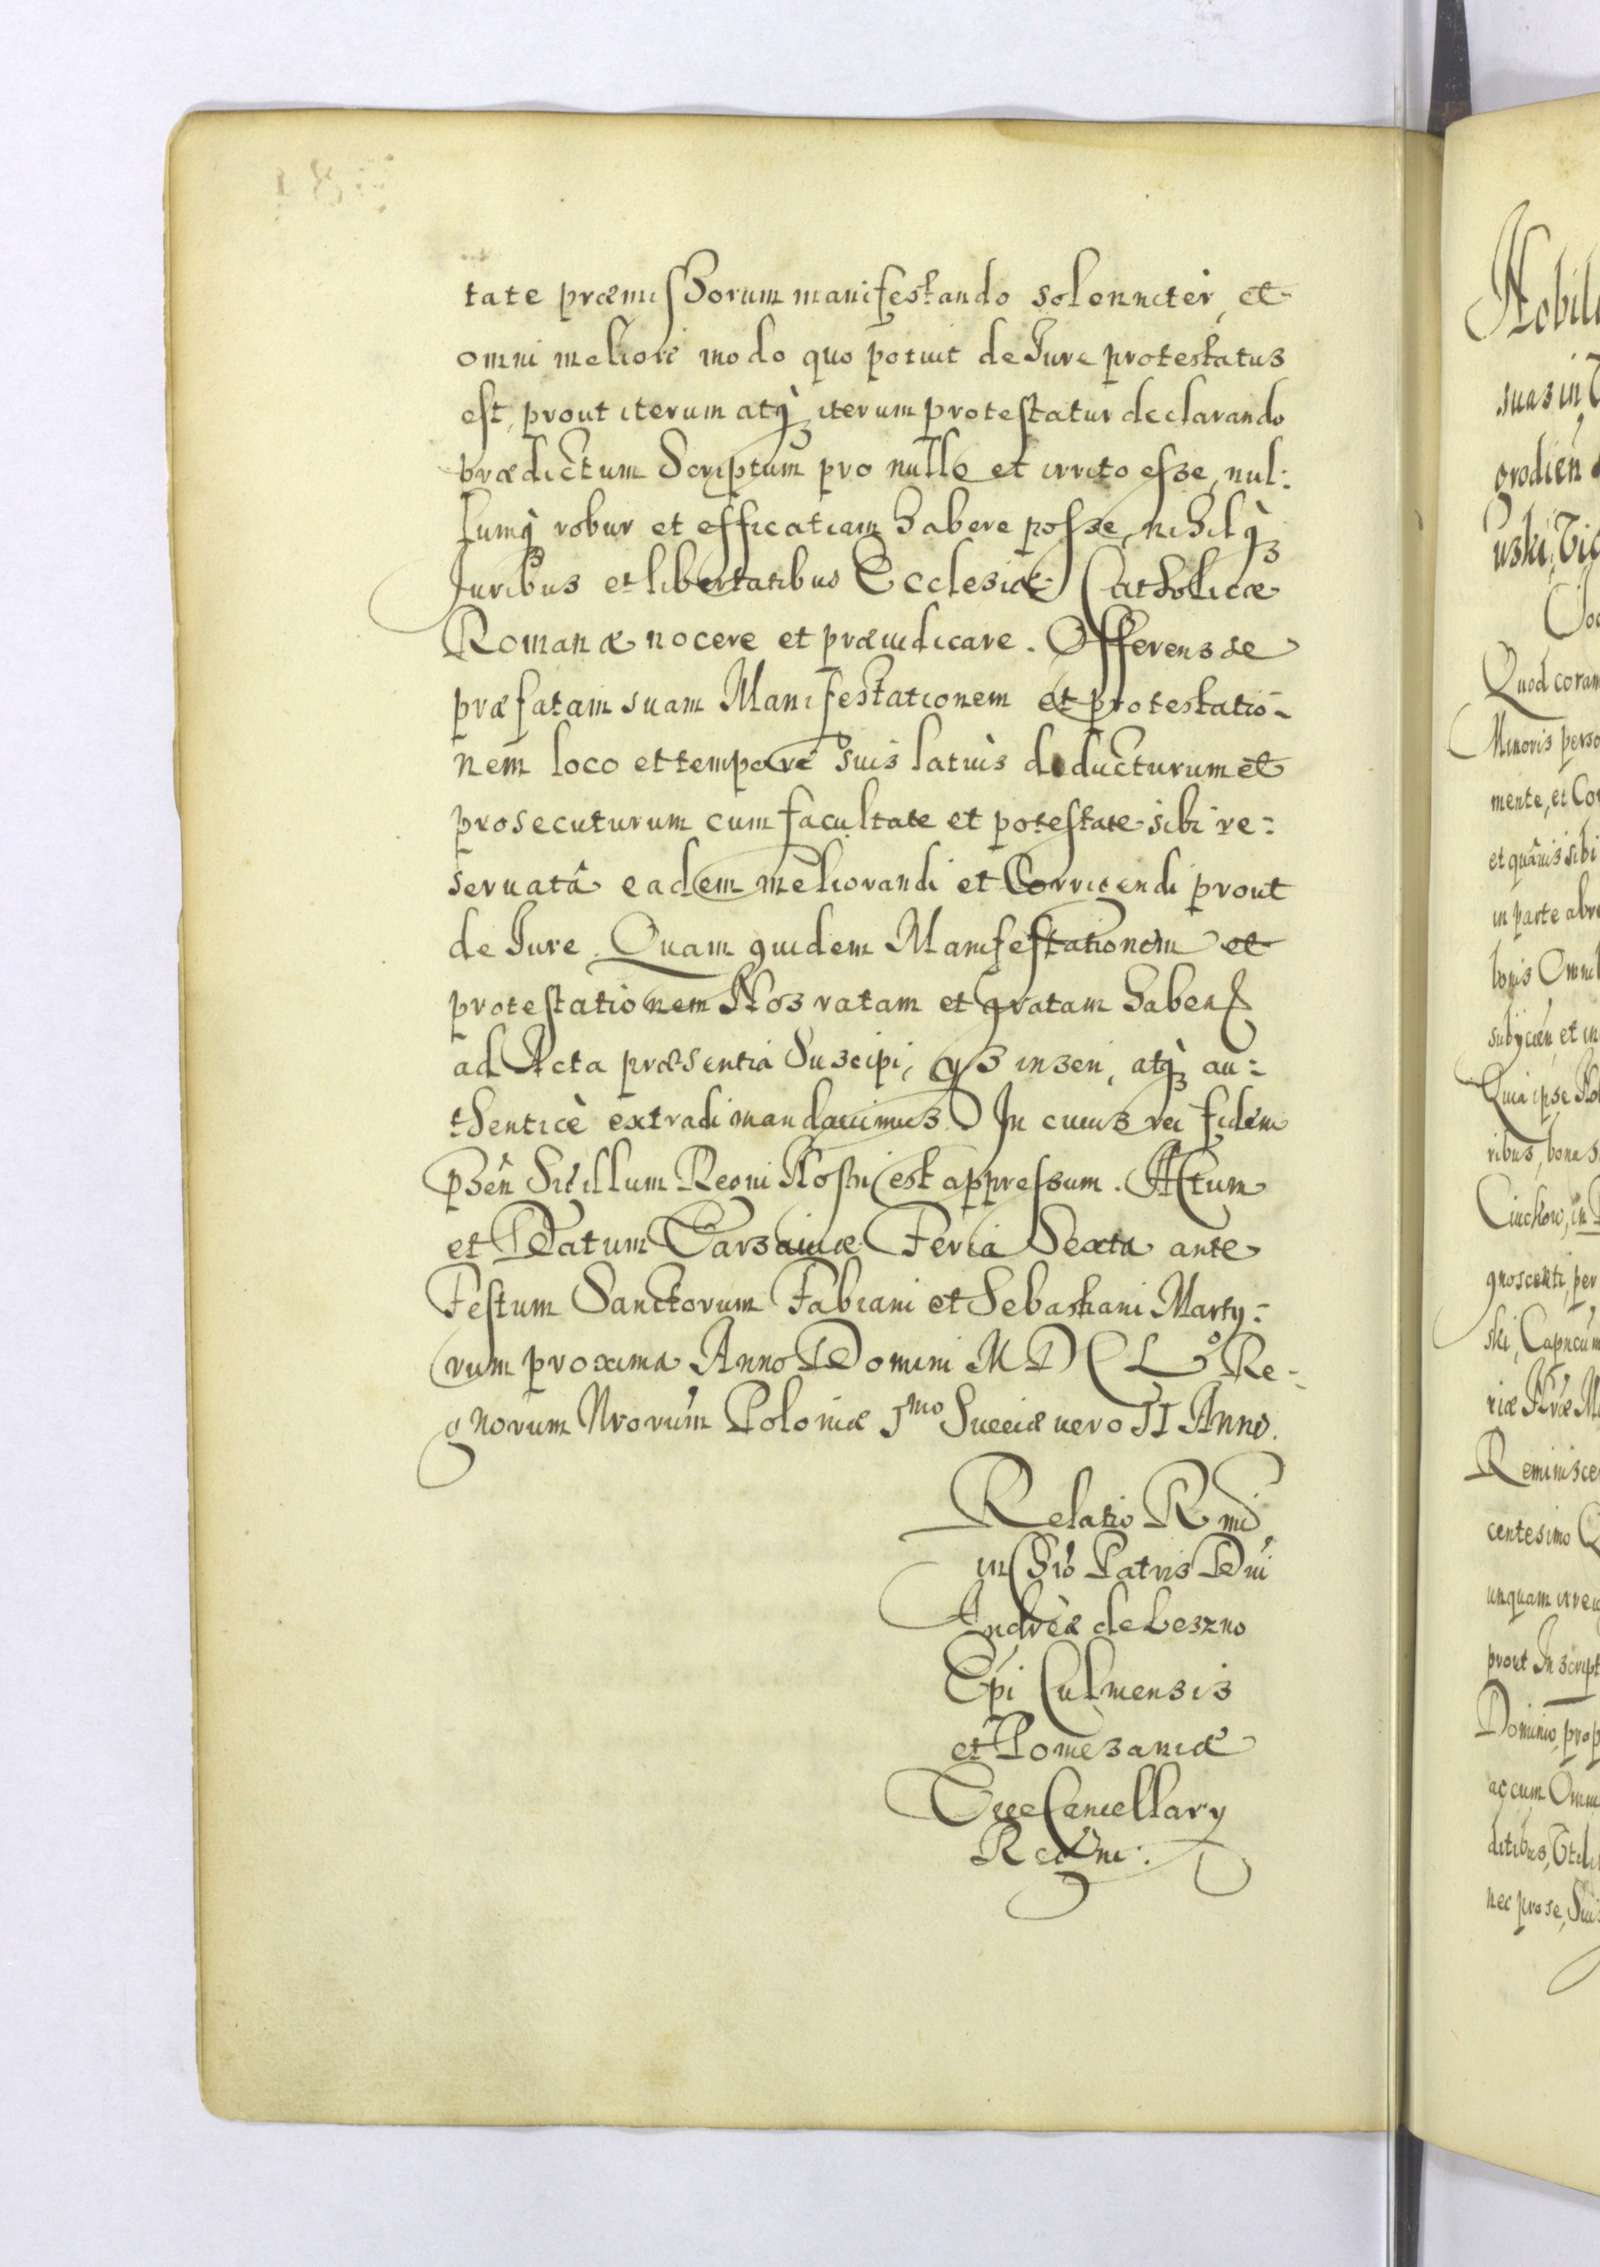 tate præmissorum manifestando solenniter, et
omni meliori modo quo potuit de Iure protestatus
est, prout iterum atq iterum protestatur declarando
prædictum Scriptum pro nullo et irrito esse, nul:
lumq robur et efficatiam habere posse, nihilq
Iuribus et libertatibus Ecclesiæ Catholicæ
Romanæ nocere et præiudicare. Offerens se
præfatam suam Manifestationem et protestatio=
nem loco et tempore suis latius deducturum et
prosecuturum cum facultate et potestate sibi re=
seruatâ eadem meliorandi et Corrigendi prout
de Iure. Quam quidem Manifestationem et
protestationem Nos ratam et gratam haben
ad Acta præsentia Suscipi, ijs inseri, atq au=
thenticè extradi mandauimus. In cuius rei fidem
pñsen Sigillum Regni Nostri est appressum. Actum
et Datum Varsauiæ Feria Sexta ante
Festum Sanctorum Fabiani et Sebastiani Marty=
rum proxima Anno Domini MDCLº Re=
gnorum Nrorum Poloniæ Imo Sueciæ uero II Anno.
Relatio Rmi
in Chro Patris Dni
Andreæ de Leszno
Epi Culmensis
et Pomezaniæ
Vice Cancellary
Regni.
Nobili
suas in
orodien
uski, Vic
Quod coram
Minoris perso
mente, et Cor
et quamis sibi
in parte abre
bonis Omni
subÿcien, et in
Quia ipse No
ribus, bona s
Ciuckow, in
gnoscenti, per
ski, Capncum
riæ M
Reminisce
centesimo
unquam irreu
prout Inscript
Dominio, prop
ac cum Omni
ditibus, Vtili
nec pro se, Suis